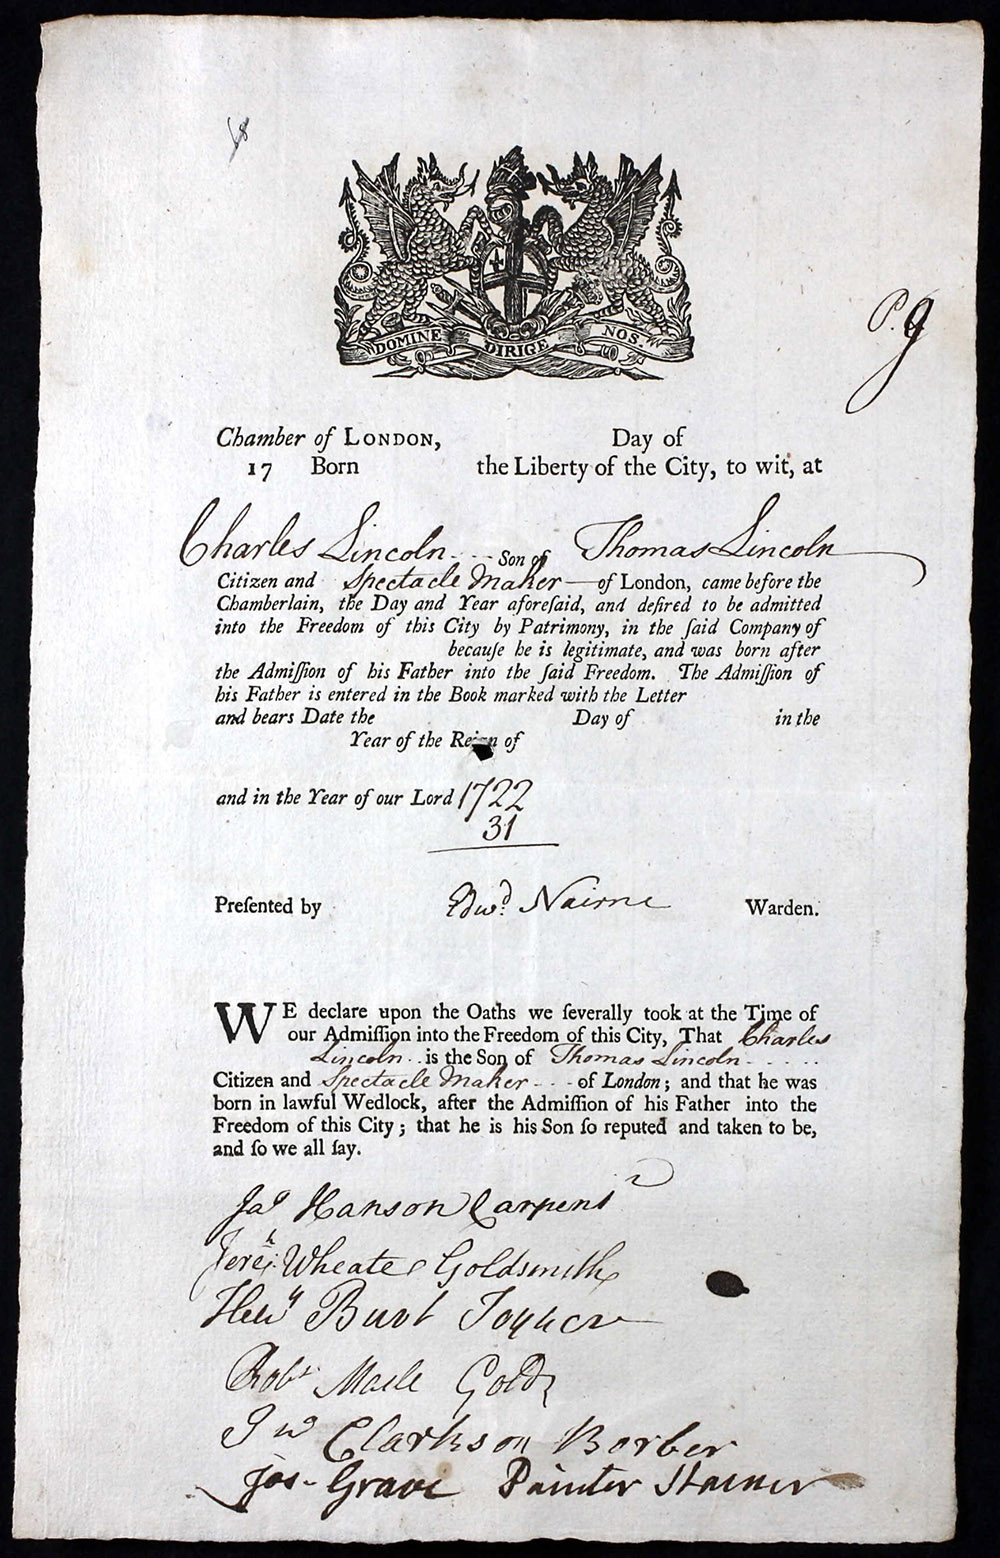 DOMINE DIRIGE NOS.
P. 9
Chamber of LONDON, Day of
17 Born the Liberty of the City, to wit, at
Charles Lincoln Son of Thomas Lincoln
Citizen and Spectacle Maker of London, came before the
Chamberlain, the Day and Year aforeſaid, and deſired to be admitted
into the Freedom of this City by Patrimony, in the ſaid Company of
becauſe he is legitimate, and was born after
the Admiſſion of his Father into the ſaid Freedom. The Admiſſion of
his Father is entered in the Book marked with the Letter
and bears Date the Day of in the
Year of the Reign of
and in the Year of our Lord 1722
31
Preſented by Edwd. Nairne Warden.
WE declare upon the Oaths we ſeverally took at the Time of
our Admiſſion into the Freedom of this City, That Charles
Lincoln is the Son of Thomas Lincoln
Citizen and Spectacle Maker of London; and that he was
born in lawful Wedlock, after the Admiſſion of his Father into the
Freedom of this City; that he is his Son ſo reputed and taken to be,
and ſo we all ſay.
Jas Hanson Carpenr
Jereh: Wheate Goldsmith
Heny Burt Joyner
Robt Goldr
Jno Clarkson Borber
Jos- Grave Painter Stainer